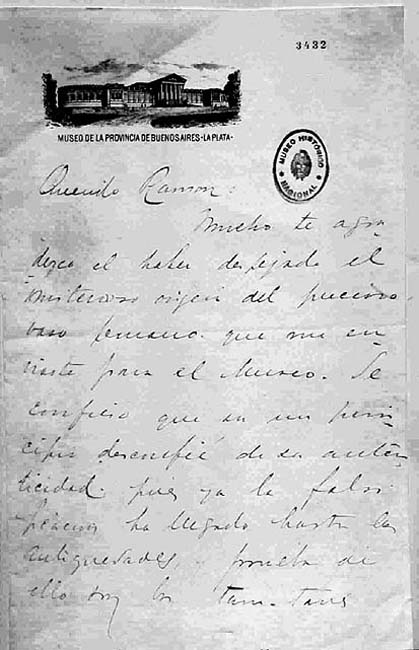 3432
MUSEO DE LA PROVINCIA DE BUENOS AIRES-LA PLATA-
MUSEO HISTÓRICO
NACIONAL
Querido Ramon:
Mucho te agra
dezco el haber despejado el
misterioso origen del precioso
vaso peruano que me en
viaste para el Museo. Te
confieso que en un prin-
cipio desconfié de su auten
ticidad pues ya la falsi
ficacion ha llegado hasta las
antiguedades, y prueba de
ello son los tam-tams